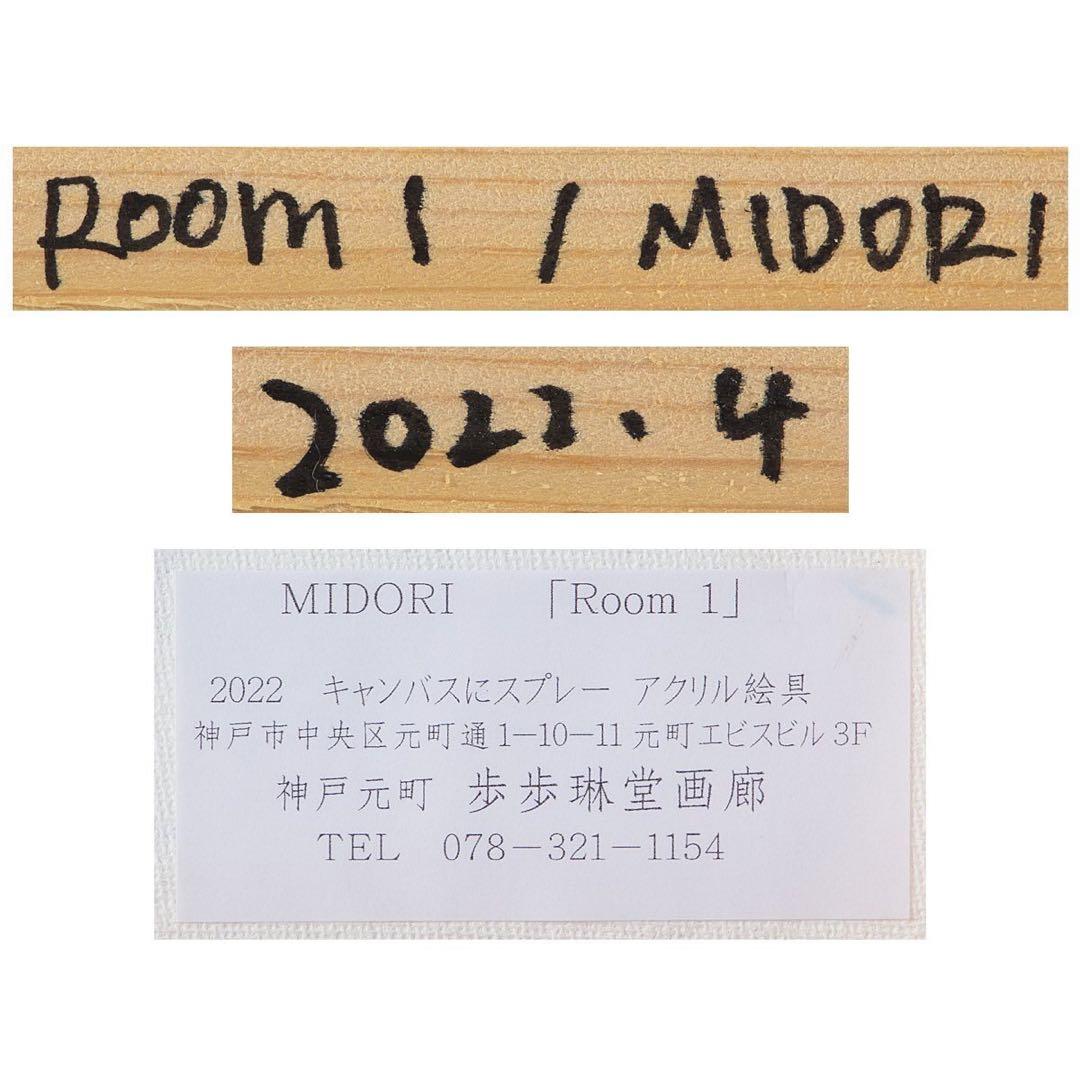 Room 1 / MIDORI
2022.4
MIDORI 「Room 1」
2022 キャンバスにスプレー アクリル絵具
神戸市中央区元町通1-10-11元町エビスビル3F
神戸元町 歩歩琳堂画廊
TEL 078-321-1154